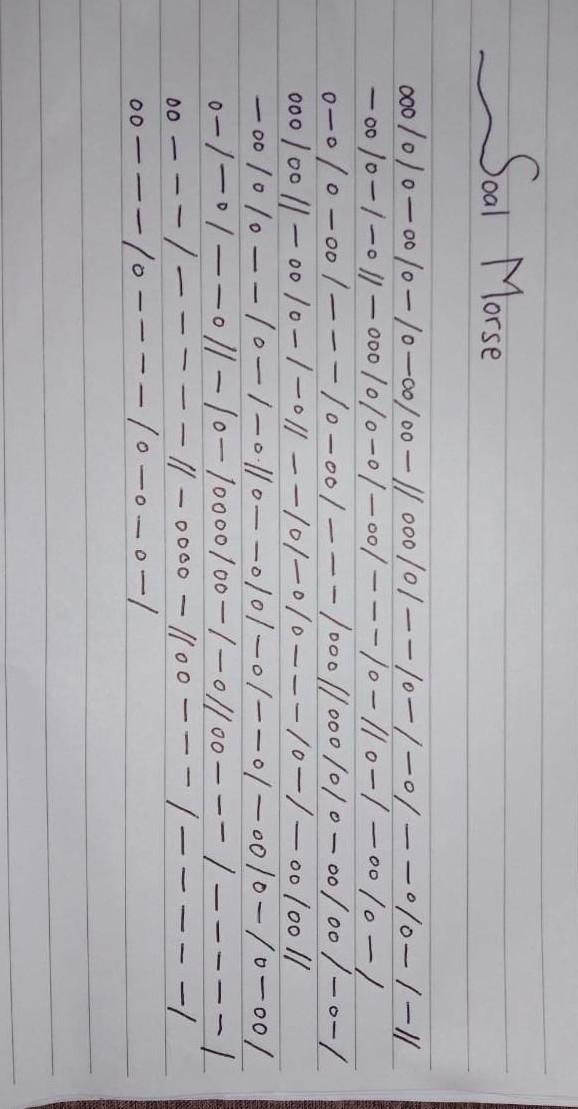 Soal Morse
ooo/o/o-oo/o-/o-oo/oo-//ooo/o/--/o-/-o/--o/o-/-//
-oo/o-/-o//-ooo/o/o-o/-oo/---/o-//o-/-oo/o-/
o-o/o-oo/---/o-oo/---/ooo//ooo/o/o-oo/oo/-o-/
ooo/oo//-oo/o-/-o//--/o/-o/o---/o-/-oo/oo//
-oo/o/o--/o-/-o//o--o/o/-o/--o/-oo/o-/o-oo/
o-/-o/--o//-/o-/oooo/oo-/-o//oo---/-----/
oo---/-----//-oooo-//oo---/-----/
oo---/o----/o-o-o-/